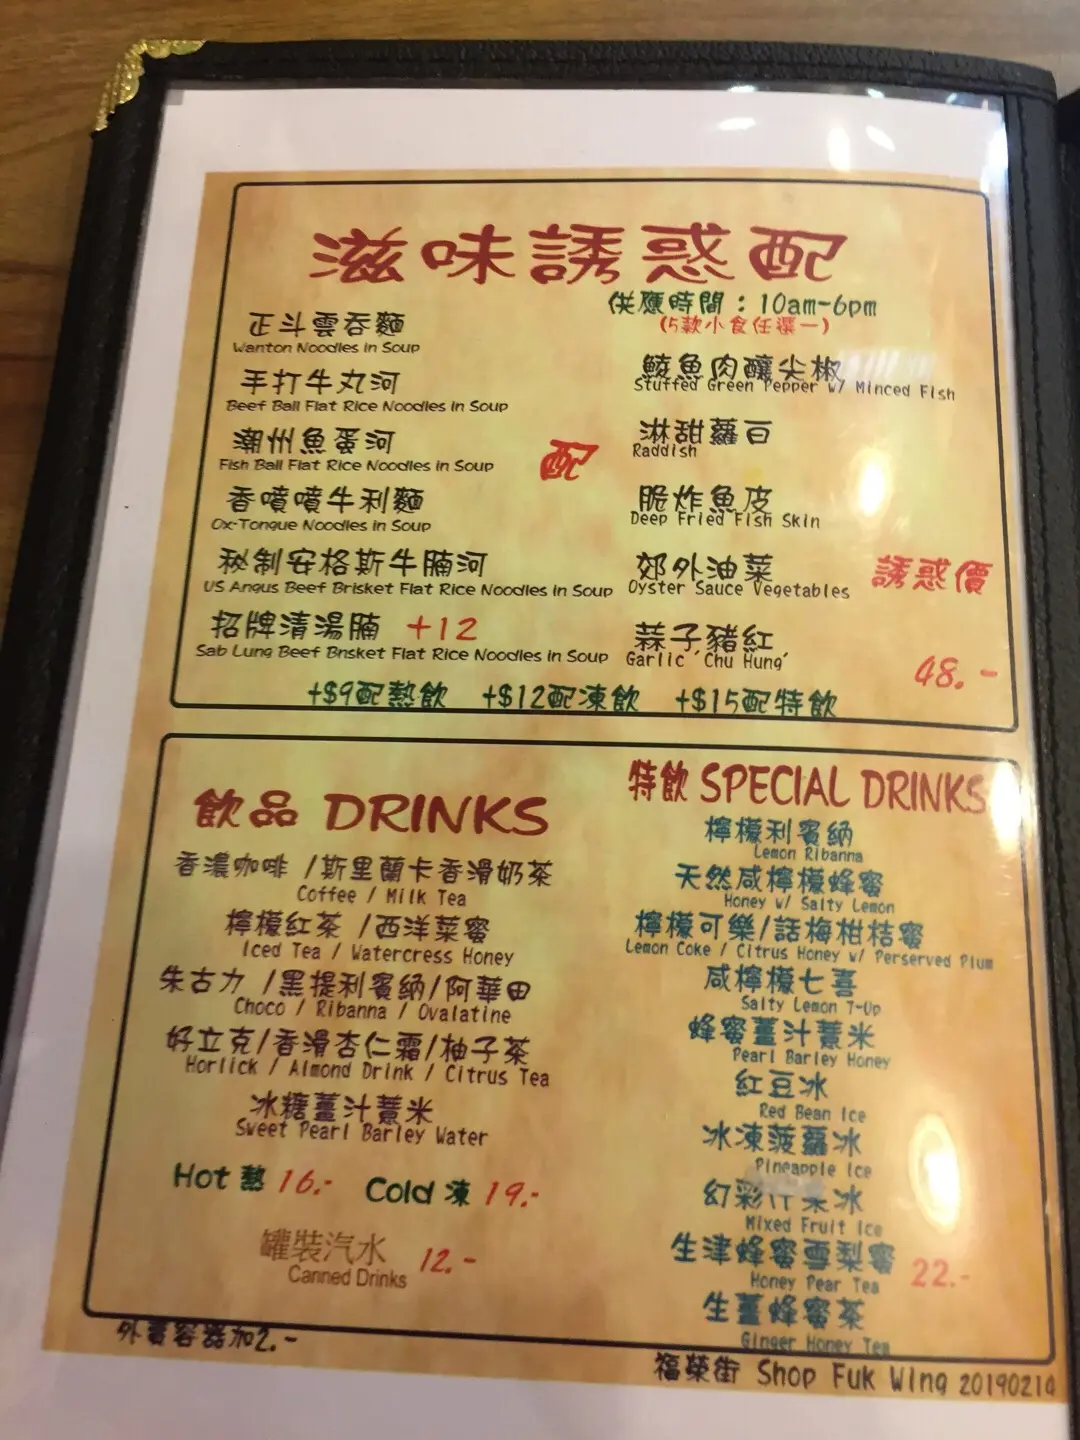 滋味誘惑配
供應時間：10am-6pm
(5款小食任選一)
正斗雲吞麵
Wanton Noodles in Soup
手打牛丸河
Beef Ball Flat Rice Noodles in Soup
潮州魚蛋河
Fish Ball Flat Rice Noodles in Soup
香噴噴牛利麵
Ox-Tongue Noodles in Soup
秘制安格斯牛腩河
US Angus Beef Brisket Flat Rice Noodles in Soup
招牌清湯腩 +12
Sab Lung Beef Brisket Flat Rice Noodles in Soup
配
鯪魚肉釀尖椒
Stuffed Green Pepper w/ Minced Fish
淋甜蘿白
Raddish
脆炸魚皮
Deep Fried Fish Skin
郊外油菜
Oyster Sauce Vegetables
蒜子豬紅
Garlic 'Chu Hung'
誘惑價
48.-
+$9配熱飲 +$12配凍飲 +$15配特飲
飲品 DRINKS
香濃咖啡 /斯里蘭卡香滑奶茶
Coffee / Milk Tea
檸檬紅茶 /西洋菜蜜
Iced Tea / Watercress Honey
朱古力 /黑提利賓納/阿華田
Choco / Ribanna / Ovalatine
好立克/香滑杏仁霜/柚子茶
Horlick / Almond Drink / Citrus Tea
冰糖薑汁薏米
Sweet Pearl Barley Water
Hot 熱 16.- Cold 凍 19.-
罐裝汽水 12.-
Canned Drinks
特飲 SPECIAL DRINKS
檸檬利賓納
Lemon Ribanna
天然咸檸檬蜂蜜
Honey w/ Salty Lemon
檸檬可樂/話梅柑桔蜜
Lemon Coke / Citrus Honey w/ Perserved Plum
咸檸檬七喜
Salty Lemon 7-Up
蜂蜜薑汁薏米
Pearl Barley Honey
紅豆冰
Red Bean Ice
冰凍菠蘿冰
Pineapple Ice
幻彩什果冰
Mixed Fruit Ice
生津蜂蜜雪梨蜜
Honey Pear Tea
22.-
生薑蜂蜜茶
Ginger Honey Tea
外賣容器加2.-
福榮街 Shop Fuk Wing 20190214